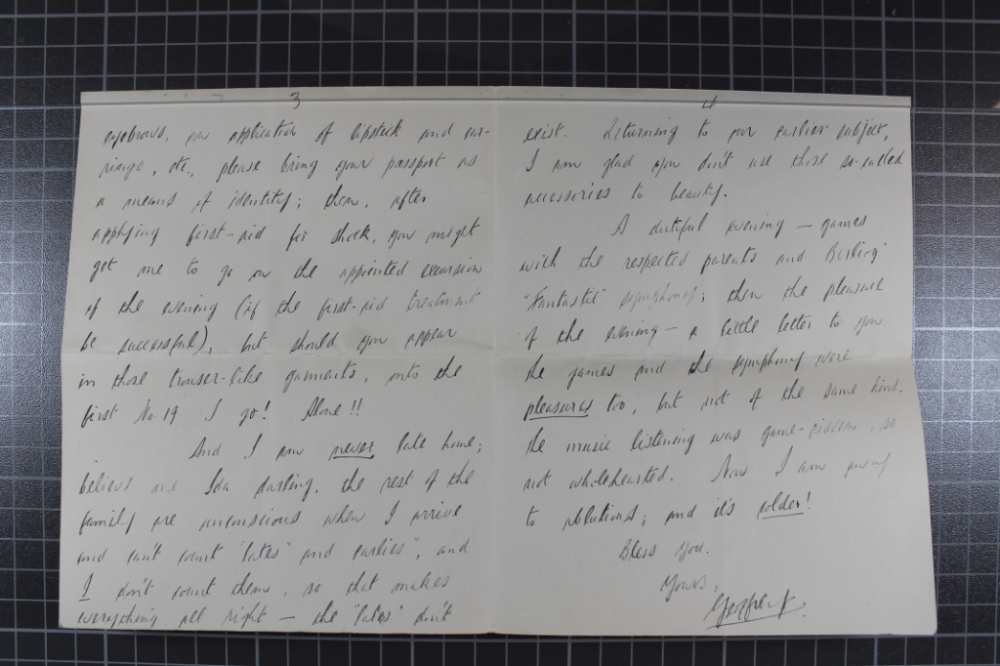 3
eyebrows, or application of lipstick and ear-
rings, etc., please bring your passport as
a means of identity; then, after
applying first-aid for shock, you might
get me to go on the appointed excursion
of the evening (if the first-aid treatment
be successful), but should you appear
in those trouser-like garments, onto the
first No 19 I go! Alone!!
And I am never late home;
believe me Ida darling, the rest of the
family are unconscious when I arrive
and can't count "lates" and earlies", and
I don't count them, so that makes
everything all right — the "lates" don't
4
exist. Returning to our earlier subject,
I am glad you don't use those so-called
accessories to beauty.
A dutiful evening — games
with the respected parents and
"Fantastic" symphony; then the pleasure
of the evening — a little letter to you.
The games and the symphony were
pleasures too, but not of the same kind.
The music listening was game-ridden, so
not wholehearted. Now I am away
to ablutions; and it's colder!
Bless you.
Yours,
Geoffrey.